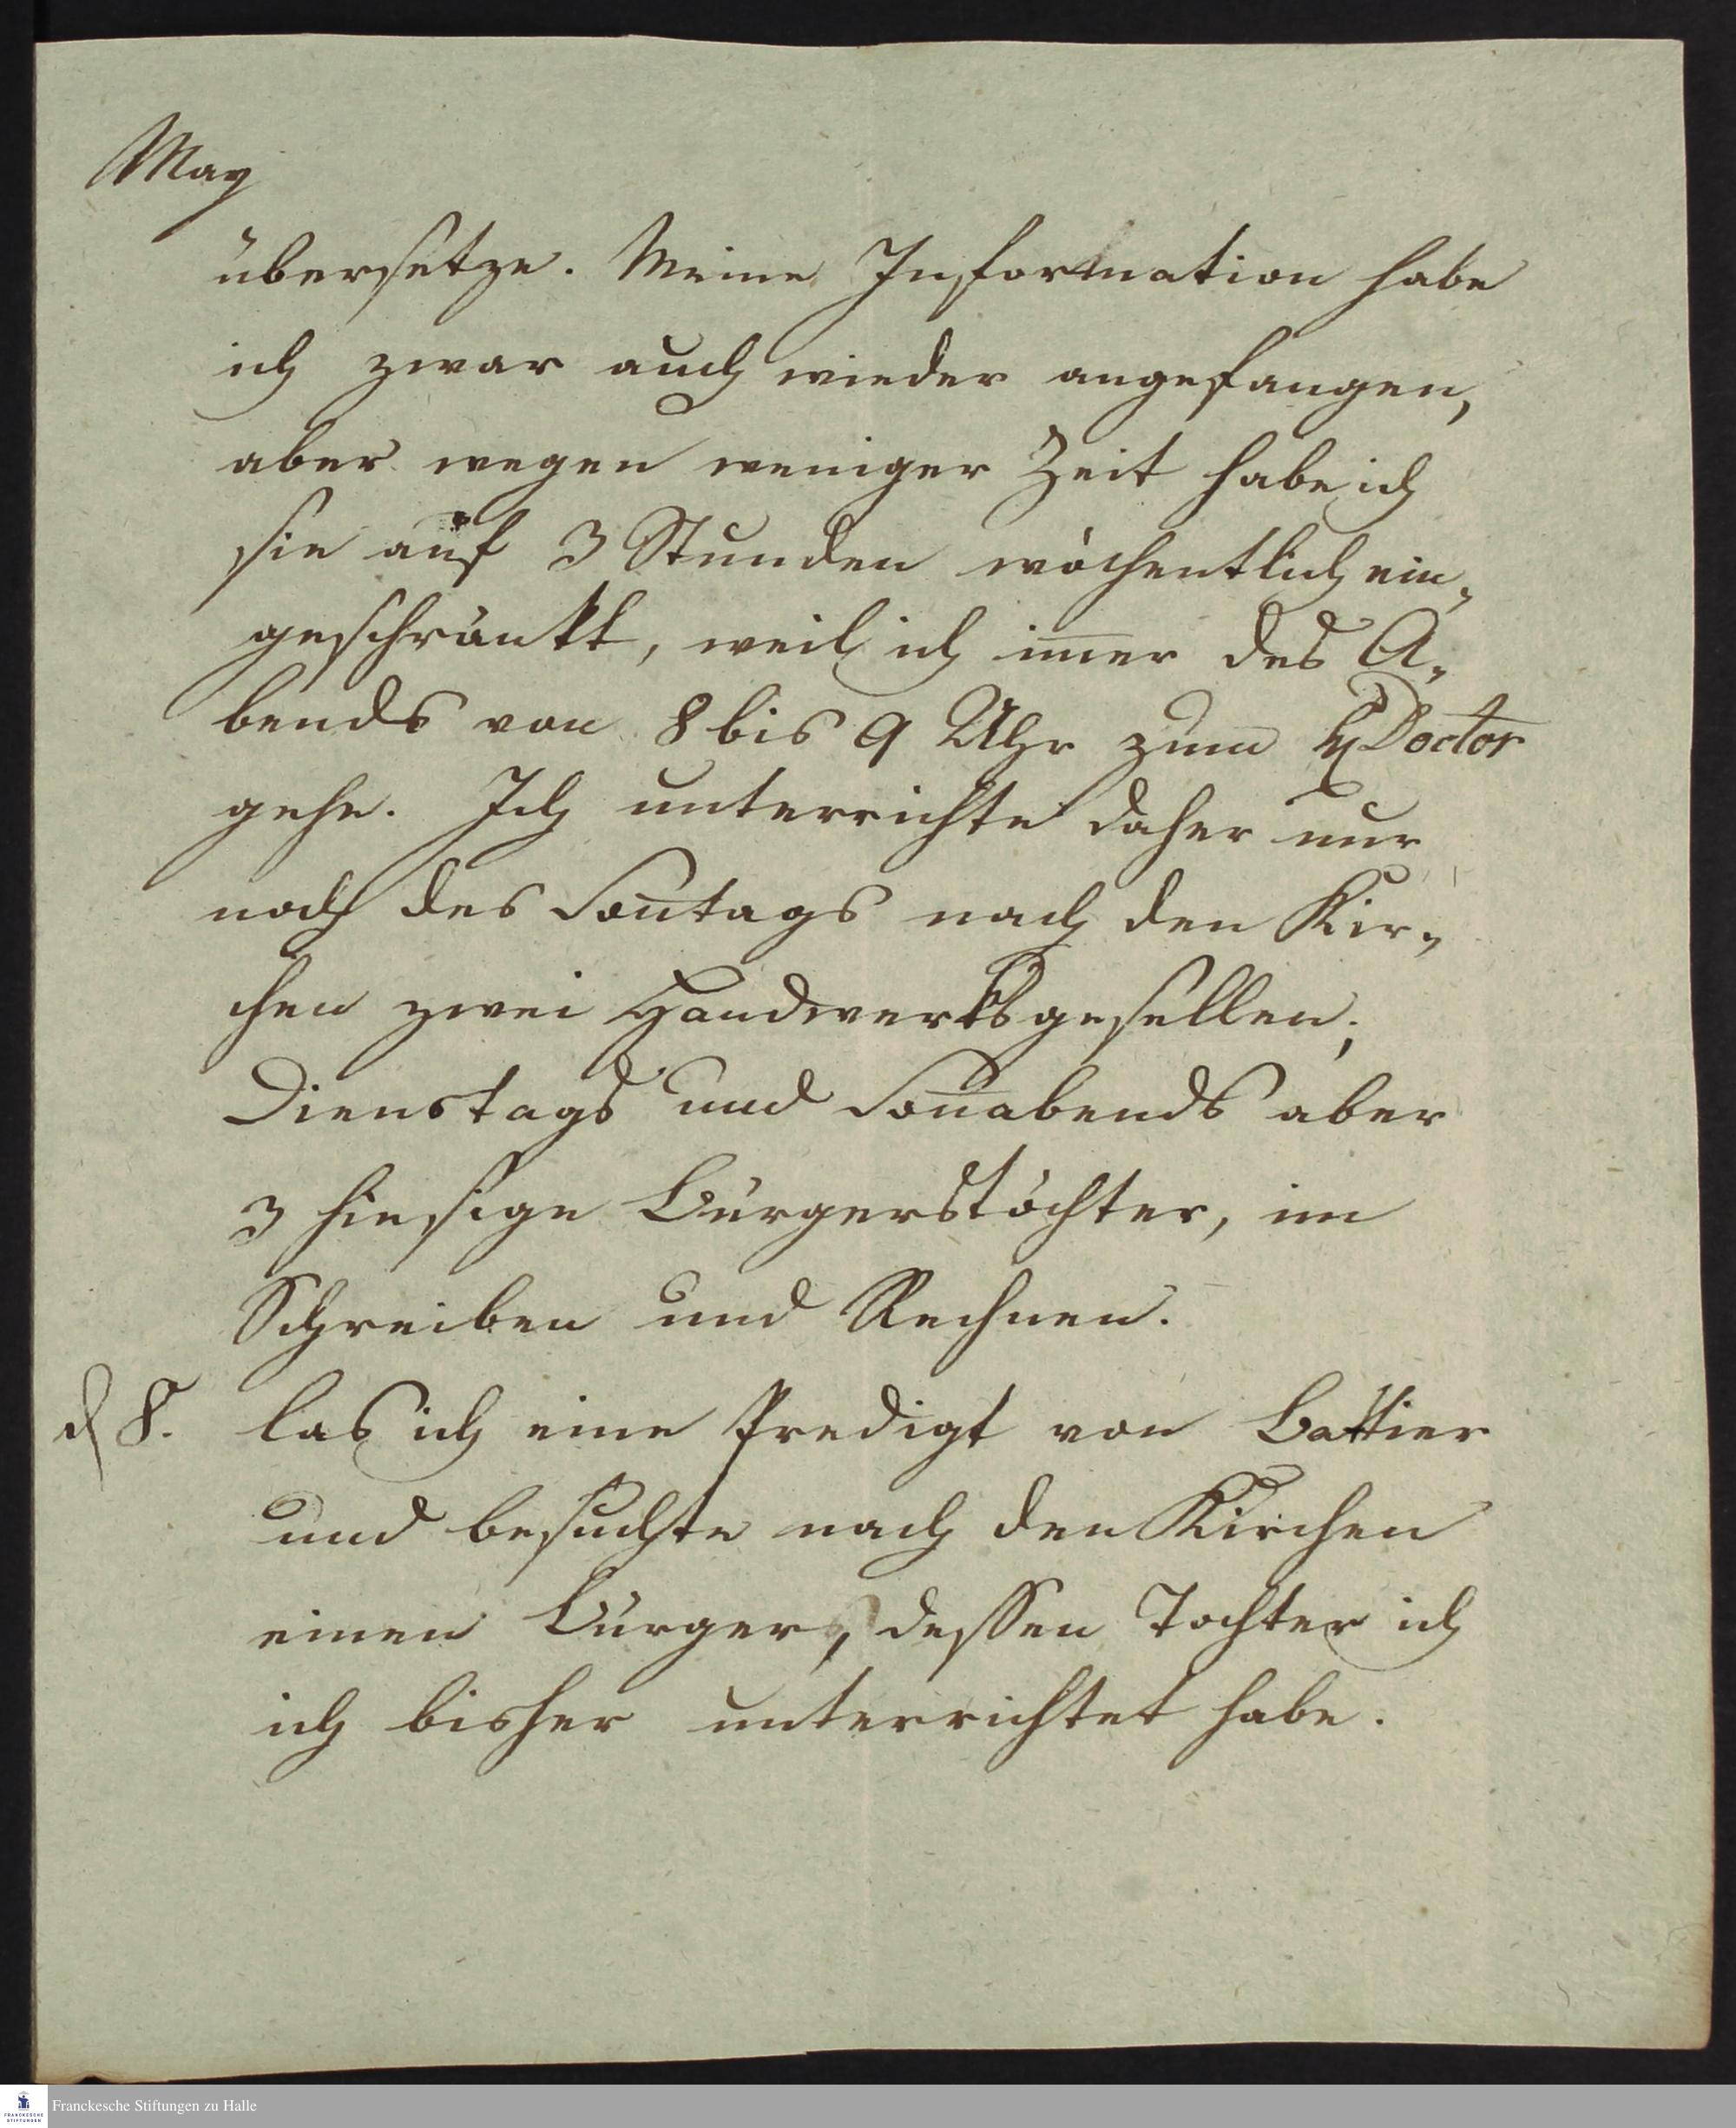 May
übersetze. Meine Information habe
ich zwar auch wieder angefangen,
aber wegen weniger Zeit habe ich
sie auf 3 Stunden wöchentlich ein-
geschränkt, weil ich im̄er des A-
bends von 8 bis 9 Uhr zum H Doctor
gehe. Ich unterrichte daher nur
noch des Son̄tags nach den Kir-
chen zwei Handwerksgesellen;
Dienstags und Son̄abends aber
3 hiesige Bürgerstöchter, im
Schreiben und Rechnen.
d 8. las ich eine Predigt von Battier
und besuchte nach den Kirchen
einen Bürger, dessen Tochter ich
ich bisher unterrichtet habe.
FRANCKESCHE STIFTUNGEN
Franckesche Stiftungen zu Halle